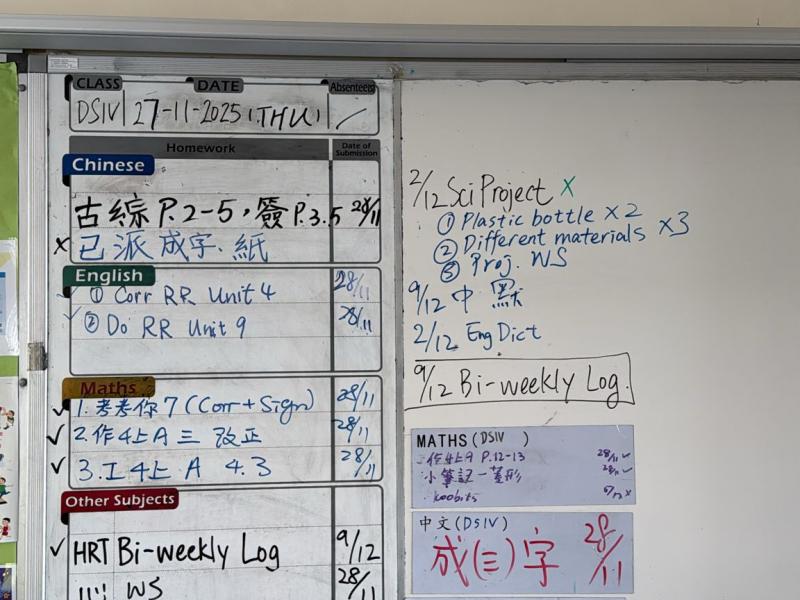 CLASS DATE Absentees
DSIV 27-11-2025 (THU) /
Homework Date of Submission
Chinese
古綜 P.2-5, 簽 P.3.5 28/11
× 已派成字.紙
English
① Corr RR Unit 4 28/11
✓ ② Do RR Unit 9 28/11
Maths
✓ 1. 考考你 7 (Corr + Sign) 28/11
✓ 2. 作4上A 三 改正 28/11
✓ 3. 工4上 A 4.3 28/11
Other Subjects
✓ HRT Bi-weekly Log 9/12
WS 28/11
2/12 Sci Project ×
① Plastic bottle ×2
② Different materials ×3
③ Proj. WS
9/12 中 默
2/12 Eng Dict
9/12 Bi-weekly Log.
MATHS (DSIV )
作4上A P.12-13 28/11 ✓
小筆記－菱形 28/11 ✓
koobits ×
中文 (DSIV)
成(三)字 28/11